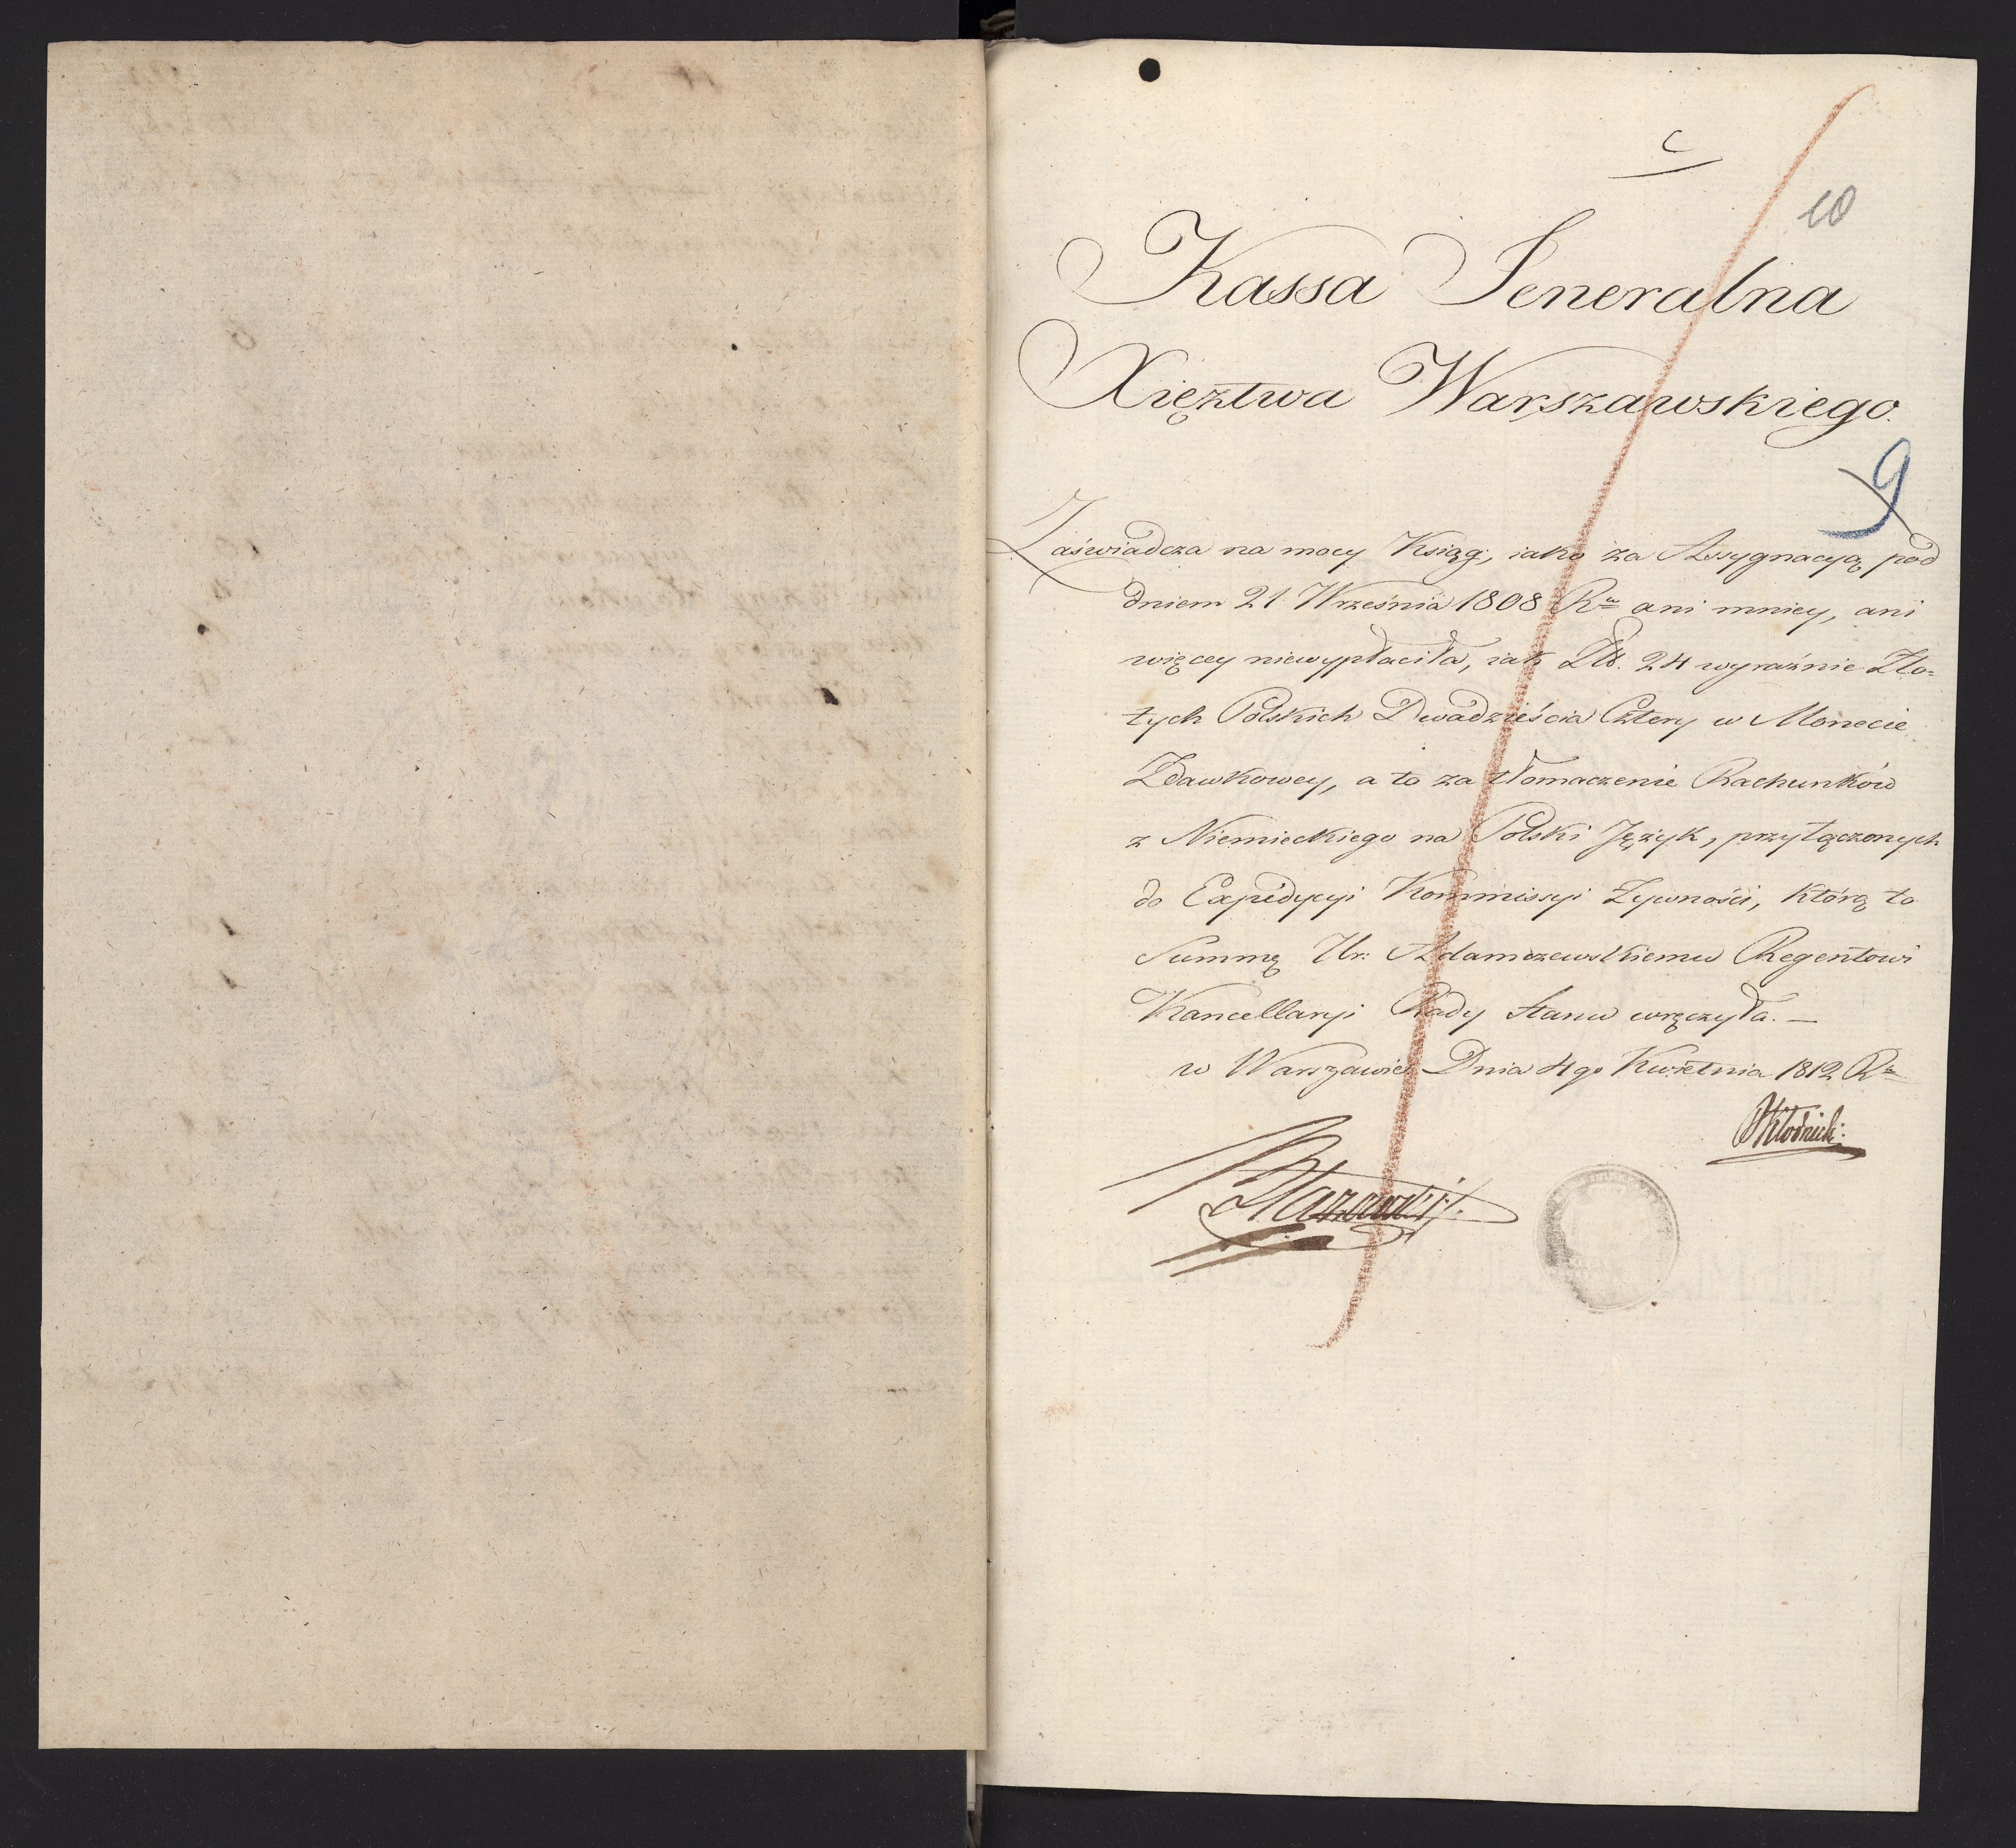 C
10
Kassa Jeneralna
Xięztwa Warszawskiego.
9
Zaświadcza na mocy Książ, iako za Assygnacyą pod
dniem 21 Września 1808 Ru ani mniey, ani
więcey niewypłaciła, iak Złł. 24 wyraźnie Zło=
tych Polskich Dwadzieścia Cztery w Monecie
Zdawkowey, a to za tłomaczenie Rachunków
z Niemieckiego na Polski Język, przyłączonych
do Expedycyi Kommissyi Żywności, którą to
Summę Ur: Adamczewskiemu Regentowi
Kancellaryi Rady Stanu wręczyła. —
w Warszawie Dnia 4go Kwietnia 1812 Ru